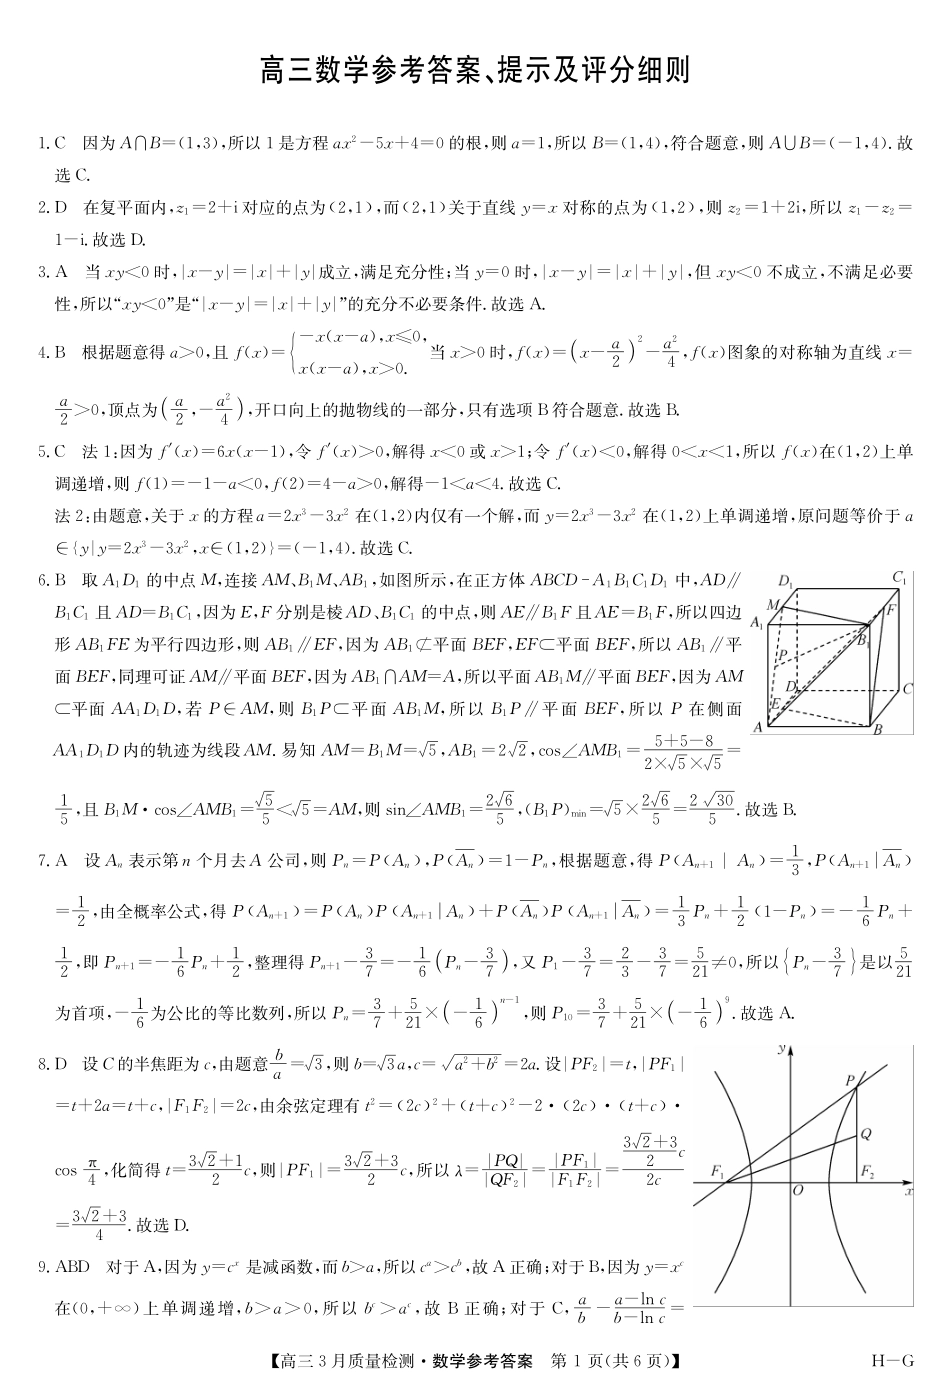 高三数学参考答案、提示及评分细则
1. C 因为 A∩B=(1,3),所以 1 是方程 ax²-5x+4=0 的根,则 a=1,所以 B=(1,4),符合题意,则 A∪B=(-1,4). 故
选 C.
2. D 在复平面内,z₁=2+i 对应的点为(2,1),而(2,1)关于直线 y=x 对称的点为(1,2),则 z₂=1+2i,所以 z₁-z₂=
1-i. 故选 D.
3. A 当 xy<0 时,|x-y|=|x|+|y|成立,满足充分性;当 y=0 时,|x-y|=|x|+|y|,但 xy<0 不成立,不满足必要
性,所以“xy<0”是“|x-y|=|x|+|y|”的充分不必要条件. 故选 A.
4. B 根据题意得 a>0,且 f(x)={-x(x-a),x≤0, x(x-a),x>0. 当 x>0 时,f(x)=(x-a/2)²-a²/4,f(x)图象的对称轴为直线 x=
a/2>0,顶点为(a/2,-a²/4),开口向上的抛物线的一部分,只有选项 B 符合题意. 故选 B.
5. C 法 1:因为 f′(x)=6x(x-1),令 f′(x)>0,解得 x<0 或 x>1;令 f′(x)<0,解得 0<x<1,所以 f(x)在(1,2)上单
调递增,则 f(1)=-1-a<0,f(2)=4-a>0,解得-1<a<4. 故选 C.
法 2:由题意,关于 x 的方程 a=2x³-3x² 在(1,2)内仅有一个解,而 y=2x³-3x² 在(1,2)上单调递增,原问题等价于 a
∈{y|y=2x³-3x²,x∈(1,2)}=(-1,4). 故选 C.
6. B 取 A₁D₁ 的中点 M,连接 AM、B₁M、AB₁,如图所示,在正方体 ABCD-A₁B₁C₁D₁ 中,AD∥
B₁C₁ 且 AD=B₁C₁,因为 E,F 分别是棱 AD、B₁C₁ 的中点,则 AE∥B₁F 且 AE=B₁F,所以四边
形 AB₁FE 为平行四边形,则 AB₁∥EF,因为 AB₁⊄平面 BEF,EF⊂平面 BEF,所以 AB₁∥平
面 BEF,同理可证 AM∥平面 BEF,因为 AB₁∩AM=A,所以平面 AB₁M∥平面 BEF,因为 AM
⊂平面 AA₁D₁D,若 P∈AM,则 B₁P⊂平面 AB₁M,所以 B₁P∥平面 BEF,所以 P 在侧面
AA₁D₁D 内的轨迹为线段 AM. 易知 AM=B₁M=√5,AB₁=2√2,cos∠AMB₁=(5+5-8)/(2×√5×√5)=
1/5,且 B₁M·cos∠AMB₁=√5/5<√5=AM,则 sin∠AMB₁=2√6/5,(B₁P)min=√5×2√6/5=2√30/5. 故选 B.
D₁ C₁ M F A₁ B₁ P D C E A B
7. A 设 Aₙ 表示第 n 个月去 A 公司,则 Pₙ=P(Aₙ),P(A̅ₙ)=1-Pₙ,根据题意,得 P(Aₙ₊₁|Aₙ)=1/3,P(Aₙ₊₁|A̅ₙ)
=1/2,由全概率公式,得 P(Aₙ₊₁)=P(Aₙ)P(Aₙ₊₁|Aₙ)+P(A̅ₙ)P(Aₙ₊₁|A̅ₙ)=1/3Pₙ+1/2(1-Pₙ)=-1/6Pₙ+
1/2,即 Pₙ₊₁=-1/6Pₙ+1/2,整理得 Pₙ₊₁-3/7=-1/6(Pₙ-3/7),又 P₁-3/7=2/3-3/7=5/21≠0,所以{Pₙ-3/7}是以5/21
为首项,-1/6为公比的等比数列,所以 Pₙ=3/7+5/21×(-1/6)ⁿ⁻¹,则 P₁₀=3/7+5/21×(-1/6)⁹. 故选 A.
8. D 设 C 的半焦距为 c,由题意b/a=√3,则 b=√3a,c=√(a²+b²)=2a. 设|PF₂|=t,|PF₁|
=t+2a=t+c,|F₁F₂|=2c,由余弦定理有 t²=(2c)²+(t+c)²-2·(2c)·(t+c)·
cos π/4,化简得 t=(3√2+1)/2 c,则|PF₁|=(3√2+3)/2 c,所以 λ=|PQ|/|QF₂|=|PF₁|/|F₁F₂|=((3√2+3)/2 c)/2c
=(3√2+3)/4. 故选 D.
y P Q F₁ F₂ O x
9. ABD 对于 A,因为 y=cˣ 是减函数,而 b>a,所以 cᵃ>cᵇ,故 A 正确;对于 B,因为 y=xᶜ
在(0,+∞)上单调递增,b>a>0,所以 bᶜ>aᶜ,故 B 正确;对于 C,a/b-(a-ln c)/(b-ln c)=
【高三 3 月质量检测·数学参考答案 第 1 页(共 6 页)】 H-G